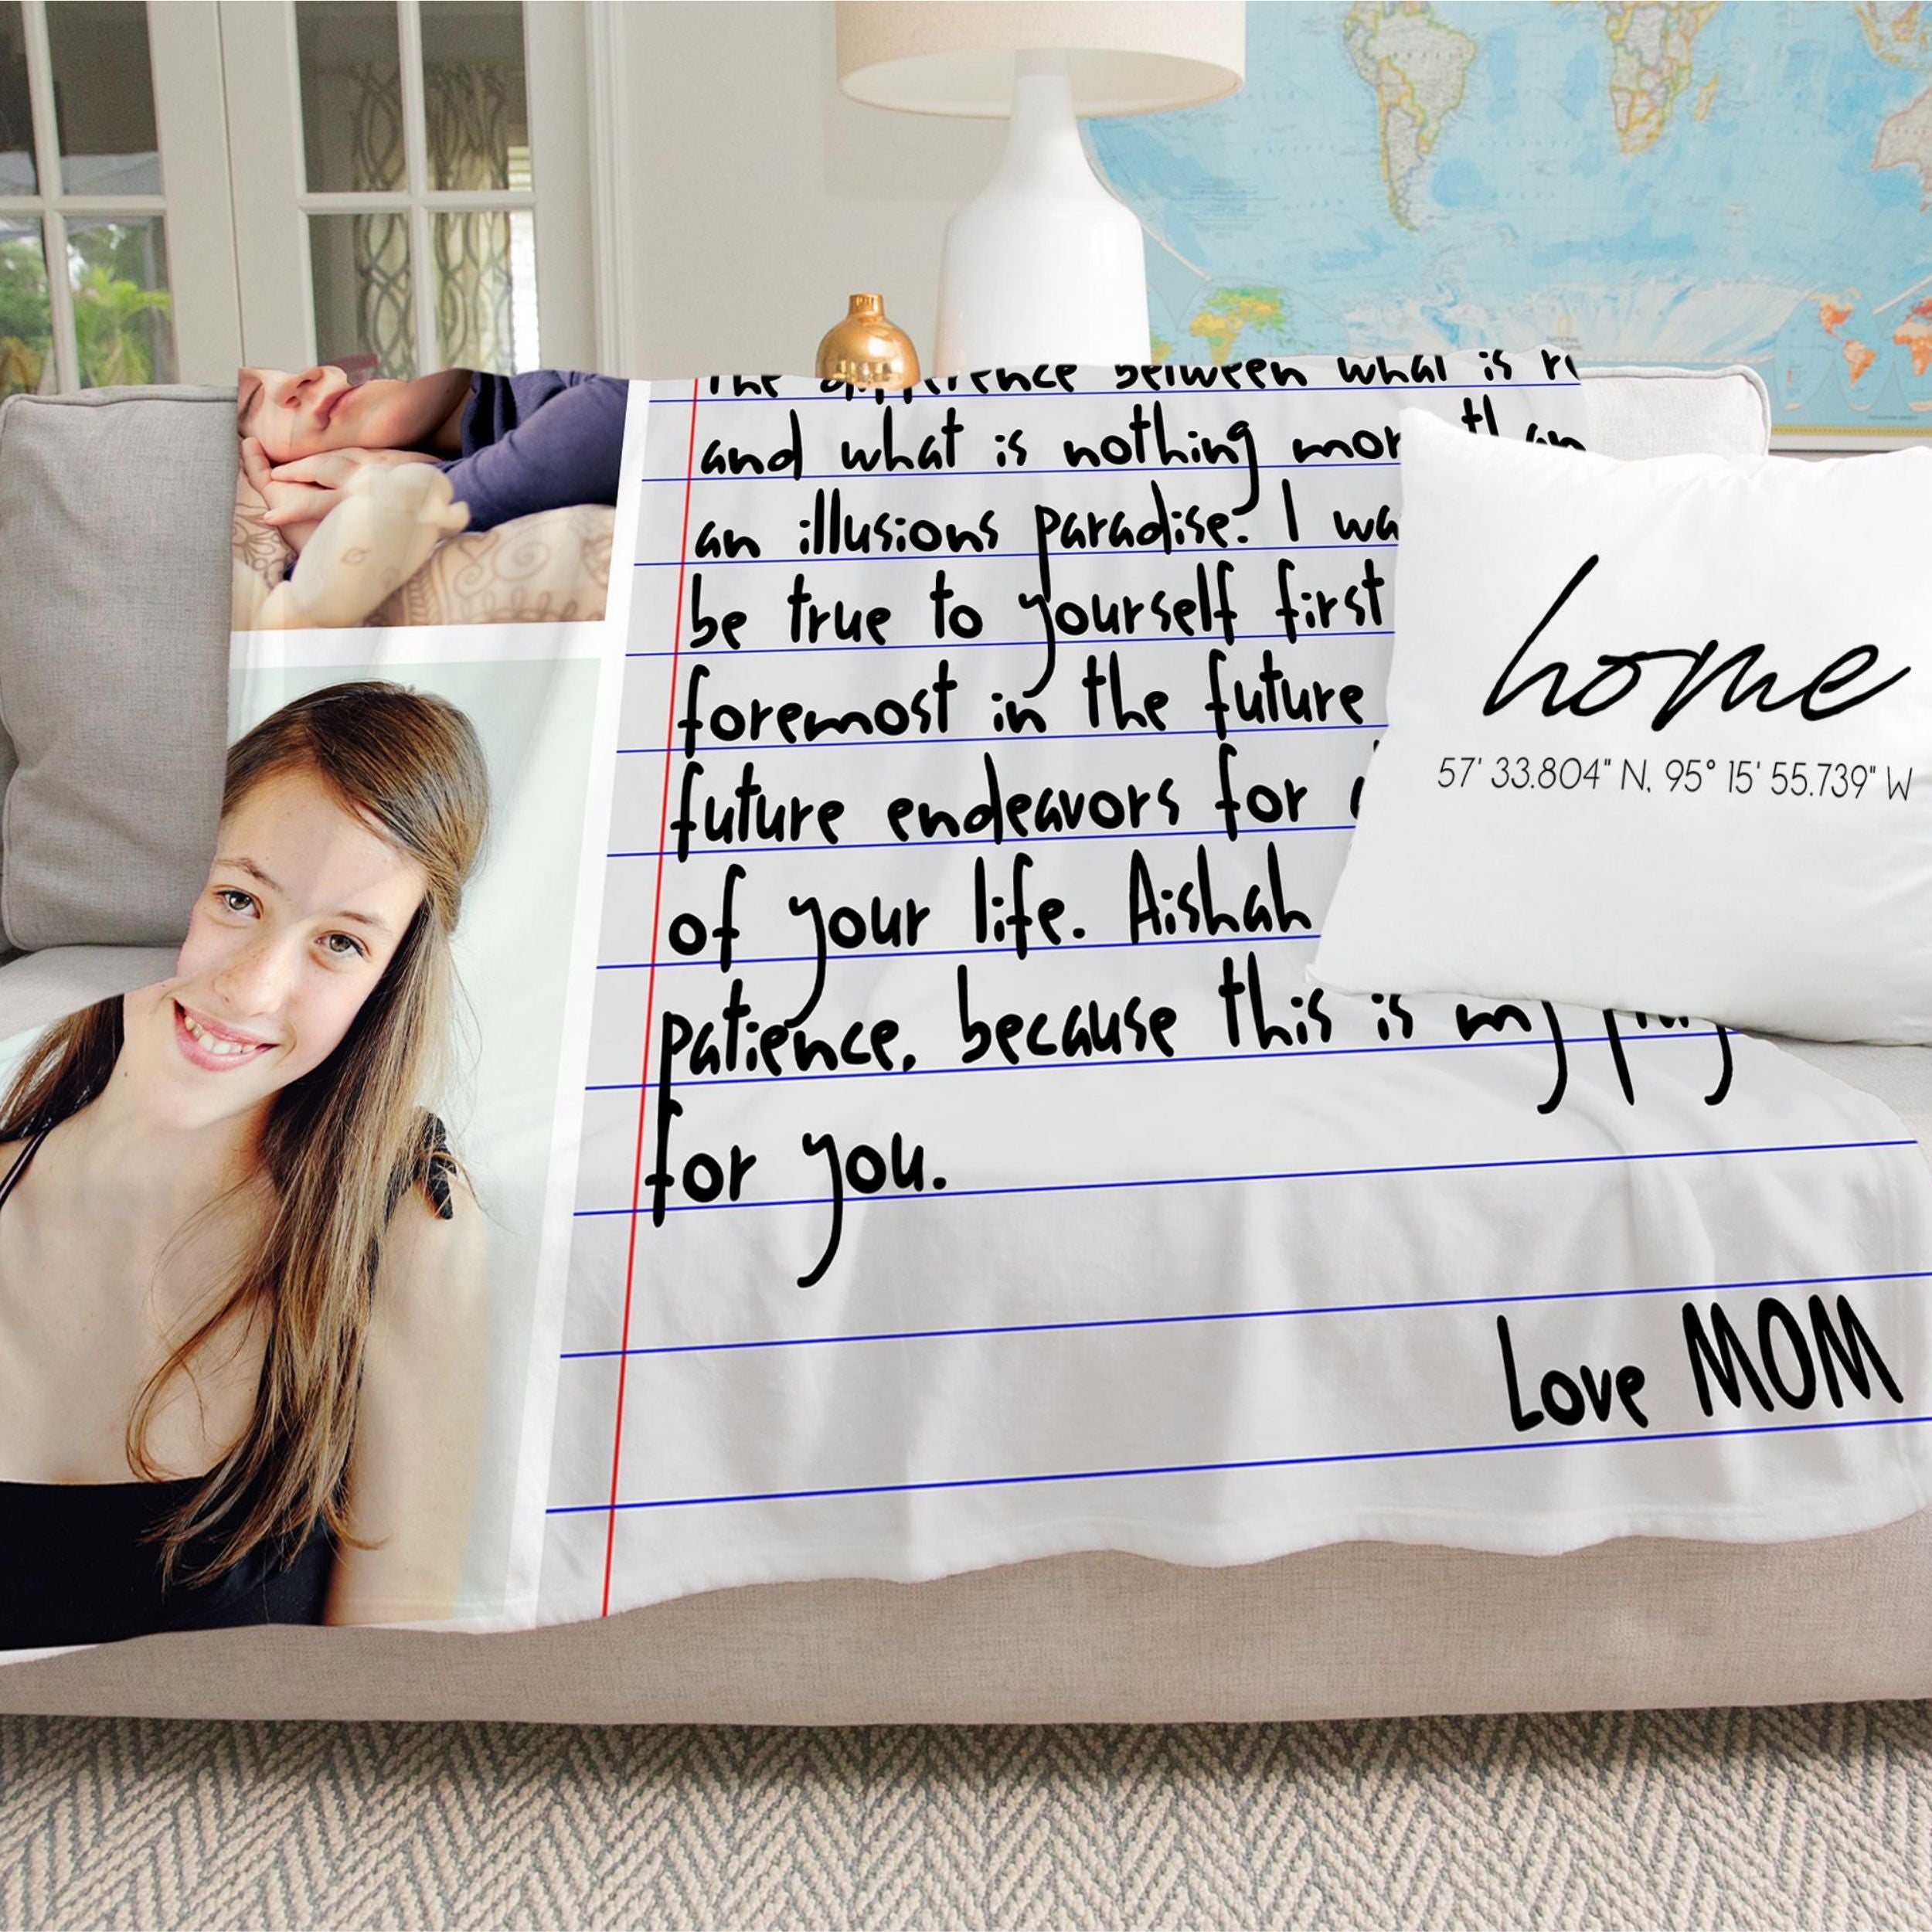 The difference between what is
and what is nothing
an illusions paradise. I
be true to yourself first
foremost in the future
future endeavors for
of your life. Aishah
patience, because this is my
for you.
Love MOM
home
57' 33.804" N, 95° 15' 55.739" W